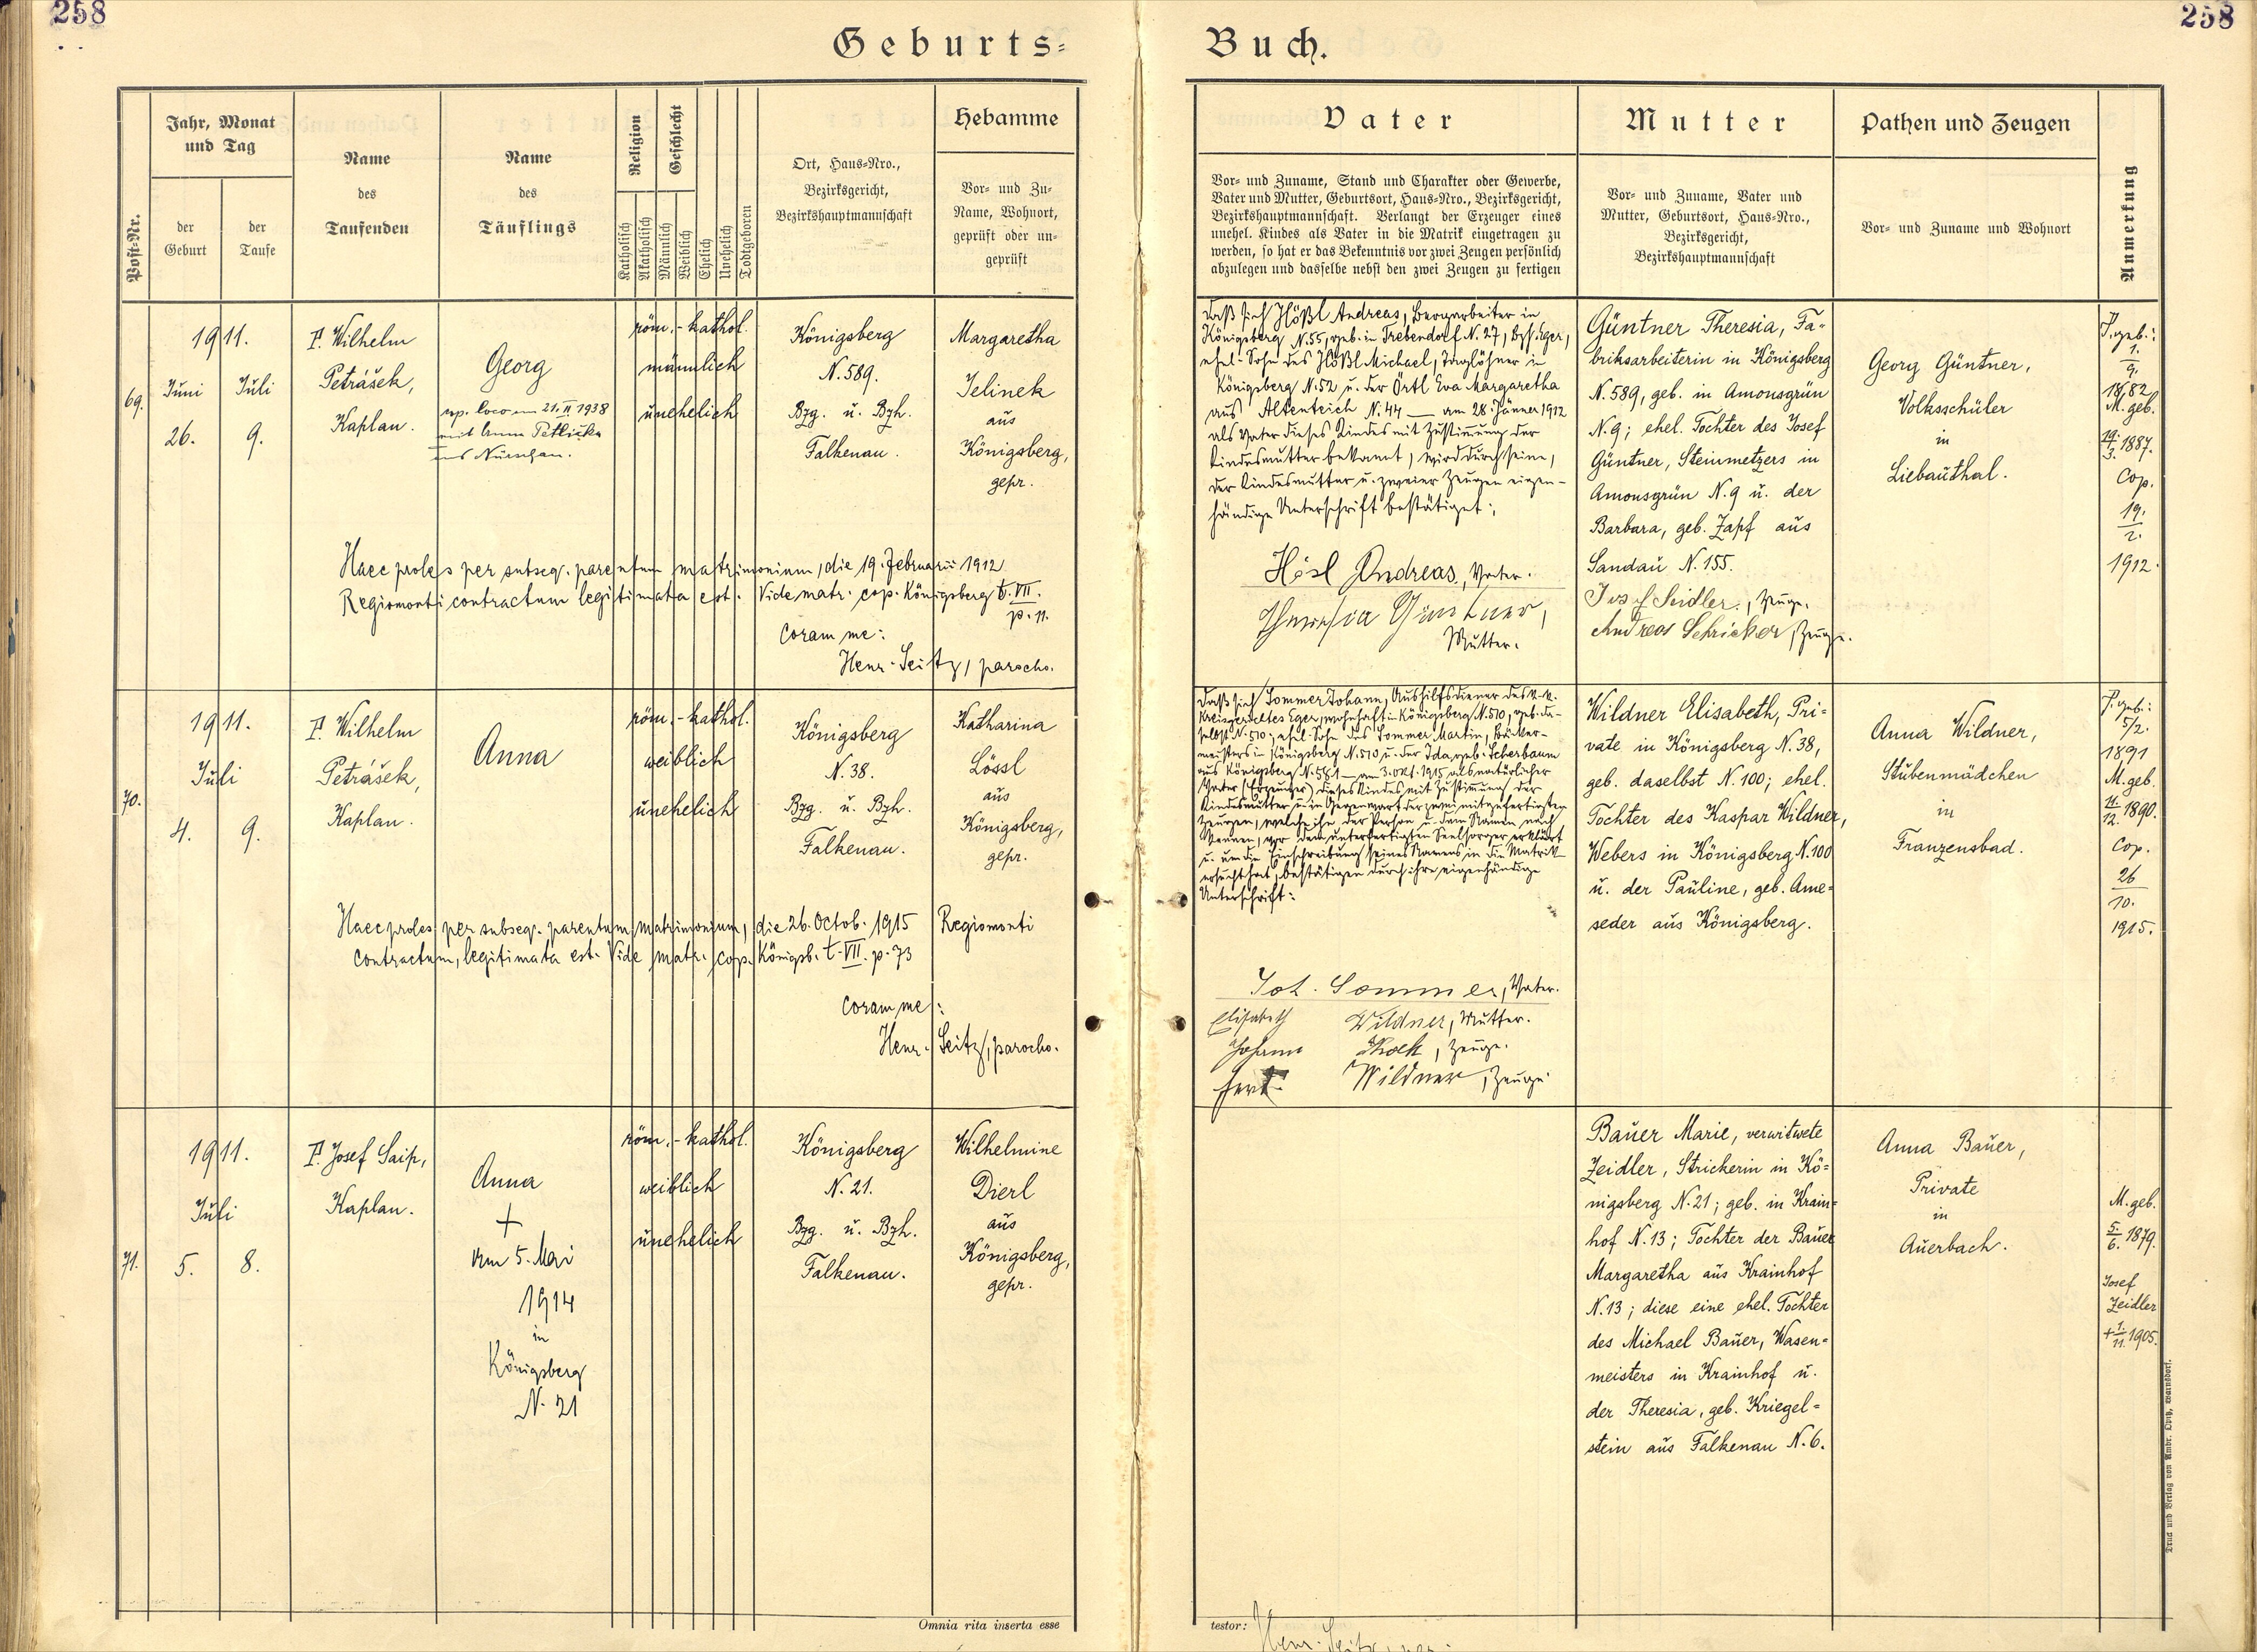 258
258
Geburts=
Buch.
Post-Nr.
Jahr, Monat
und Tag
der
Geburt
der
Taufe
Name
des
Taufenden
Name
des
Täuflings
Religion
Katholisch
Akatholisch
Geschlecht
Männlich
Weiblich
Ehelich
Unehelich
Todtgeboren
Ort, Haus-Nro.,
Bezirksgericht,
Bezirkshauptmannschaft
Hebamme
Vor- und Zu-
Name, Wohnort,
geprüft oder un-
geprüft
Vater
Vor- und Zuname, Stand und Charakter oder Gewerbe,
Vater und Mutter, Geburtsort, Haus-Nro., Bezirksgericht,
Bezirkshauptmannschaft. Verlangt der Erzeuger eines
unehel. Kindes als Vater in die Matrik eingetragen zu
werden, so hat er das Bekenntnis vor zwei Zeugen persönlich
abzulegen und dasselbe nebst den zwei Zeugen zu fertigen
Mutter
Vor- und Zuname, Vater und
Mutter, Geburtsort, Haus-Nro.,
Bezirksgericht,
Bezirkshauptmannschaft
Pathen und Zeugen
Vor- und Zuname und Wohnort
Anmerkung
69.
1911.
Juni
Juli
26.
9.
P. Wilhelm
Petrášek,
Kaplan.
Georg
cop. loco am 21. II. 1938
mit Anna Petlička
aus Nürschan.
röm.-kathol.
männlich
unehelich
Königsberg
N. 589.
Bzg. u. Bzh.
Falkenau.
Margaretha
Jelinek
aus
Königsberg,
gepr.
Haec proles per subseq. parentum matrimonium, die 19. Februarii 1912
Regiomonti contractum legitimata est. Vide matr. cop. Königsberg t. VII.
p. 11.
Coram me:
Henr. Seitz, parocho.
Daß sich Hößl Andreas, Bergarbeiter in
Königsberg N. 55, geb. in Trebendorf N. 27, Bzh. Eger,
ehel. Sohn des Hößl Michael, Taglöhner in
Königsberg N. 52 u. der Örtl Eva Margaretha
aus Altenteich N. 44 — am 28. Jänner 1912
als Vater dieses Kindes mit Zustimmung der
Kindesmutter bekannt, wird durch seine,
der Kindesmutter u. zweier Zeugen eigen-
händige Unterschrift bestätiget:
Hösl Andreas, Vater.
Theresia Güntner,
Mutter.
Güntner Theresia, Fa-
briksarbeiterin in Königsberg
N. 589, geb. in Amonsgrün
N. 9; ehel. Tochter des Josef
Güntner, Steinmetzers in
Amonsgrün N. 9 u. der
Barbara, geb. Zapf aus
Sandau N. 155.
Josef Seidler, Zeuge.
Andreas Schricker, Zeuge.
Georg Güntner,
Volksschüler
in
Liebauthal.
P. geb.:
1.
9.
1882
M. geb.
19.
3. 1887.
Cop.
19.
2.
1912.
70.
1911.
Juli
4.
9.
P. Wilhelm
Petrášek,
Kaplan.
Anna
röm.-kathol.
weiblich
unehelich
Königsberg
N. 38.
Bzg. u. Bzh.
Falkenau.
Katharina
Lössl
aus
Königsberg,
gepr.
Haec proles per subseq. parentum matrimonium, die 26. Octob. 1915 Regiomonti
contractum, legitimata est. Vide matr. cop. Königsb. t. VII. p. 73
Coram me:
Henr. Seitz, parocho.
Daß sich Sommer Johann, Aushilfsdiener des k. k.
Kreisgerichtes Eger, wohnhaft in Königsberg N. 510, geb. da-
selbst N. 510; ehel. Sohn des Sommer Martin, Bäcker-
meisters in Königsberg N. 510 u. der Ida, geb. Scherbaum
aus Königsberg N. 581 — am 3. Okt. 1915 als natürlicher
Vater (Erzeuger) dieses Kindes mit Zustimmung der
Kindesmutter u. in Gegenwart der zwei mitgefertigten
Zeugen, welche ihn der Person u. dem Namen nach
kennen, vor dem unterfertigten Seelsorger erklärt
u. um die Einschreibung seines Namens in die Matrik
ersucht hat, bestätigen durch ihre eigenhändige
Unterschrift:
Joh. Sommer, Vater.
Elisabeth Wildner, Mutter.
Johann, Zeuge.
Wildner, Zeuge
Wildner Elisabeth, Pri-
vate in Königsberg N. 38,
geb. daselbst N. 100; ehel.
Tochter des Kaspar Wildner,
Webers in Königsberg N. 100
u. der Pauline, geb. Ame-
seder aus Königsberg.
Anna Wildner,
Stubenmädchen
in
Franzensbad.
P. geb.:
5/2.
1891
M. geb.
11.
12. 1890.
Cop.
26
10.
1915.
71.
1911.
Juli
5.
8.
P. Josef Saip,
Kaplan.
Anna
+
am 5. Mai
1914
in
Königsberg
N. 21
röm.-kathol.
weiblich
unehelich
Königsberg
N. 21.
Bzg. u. Bzh.
Falkenau.
Wilhelmine
Dierl
aus
Königsberg,
gepr.
Bauer Marie, verwitwete
Zeidler, Strickerin in Kö-
nigsberg N. 21; geb. in Krain-
hof N. 13; Tochter der Bauer
Margaretha aus Krainhof
N. 13; diese eine ehel. Tochter
des Michael Bauer, Wasen-
meisters in Krainhof u.
der Theresia, geb. Kriegel-
stein aus Falkenau N. 6.
Anna Bauer,
Private
in
Auerbach.
M. geb.
5.
6. 1879.
Josef
Zeidler
+ 1.
11. 1905.
Omnia rita inserta esse
testor:
Henr. Seitz
Druck und Verlag von Ambr. Opitz, Warnsdorf.